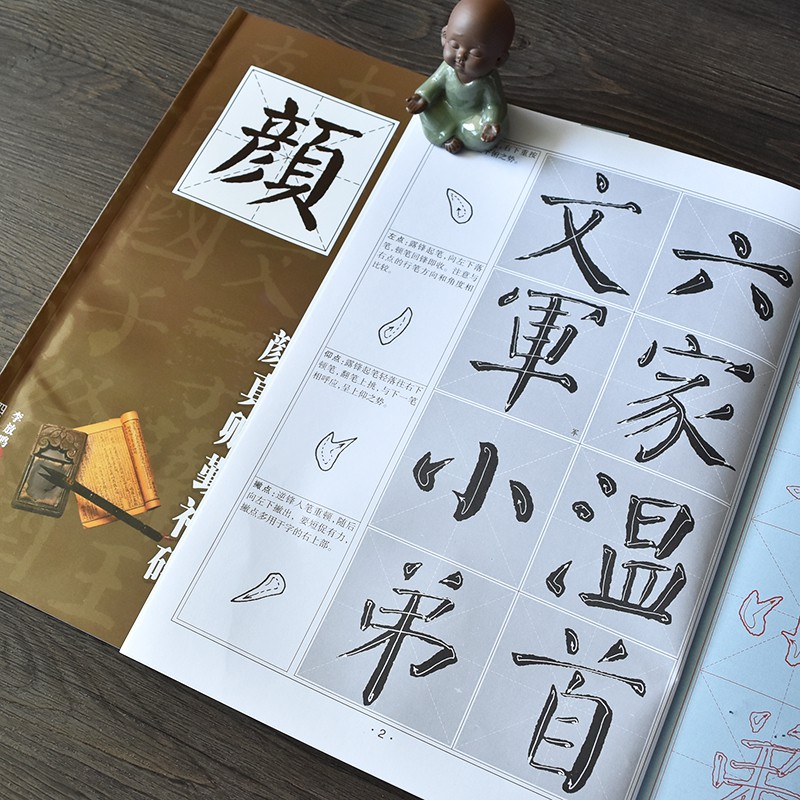 顔
颜真卿勤礼碑
李放鸣
右下重按
之势。
左点:露锋起笔,向左下落
笔,顿笔回锋即收。注意与
右点的行笔方向和角度相
比较。
仰点:露锋起笔轻落往右下
顿笔,翻笔上挑,与下一笔
相呼应,呈上仰之势。
撇点:逆锋人笔重顿,随后
向左下撇出,要短促有力,
撇点多用于字的右上部。
文 六
軍 家
小 温
弟 首
·2·